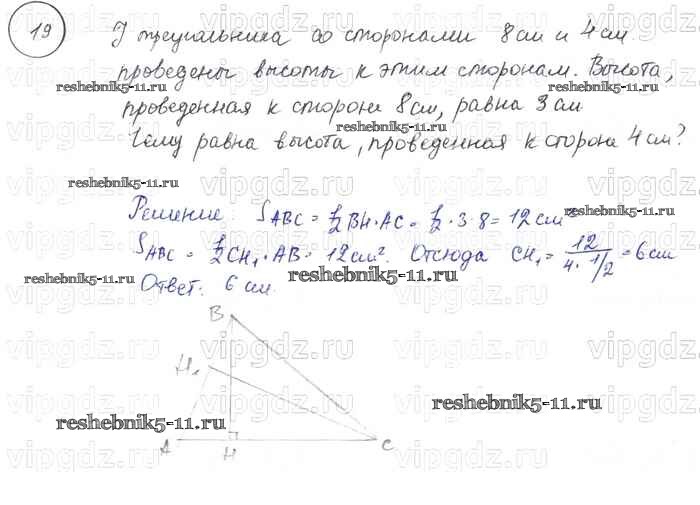 19
У треугольника со сторонами 8 см и 4 см
проведены высоты к этим сторонам. Высота,
проведенная к стороне 8 см, равна 3 см
Чему равна высота, проведенная к стороне 4 см?
Решение: S ABC = 1/2 BH · AC = 1/2 · 3 · 8 = 12 см²
S ABC = 1/2 CH₁ · AB = 12 см². Отсюда CH₁ = 12 / (4 · 1/2) = 6 см
Ответ: 6 см.
B
H₁
A H C
vipgdz.ru
reshebnik5-11.ru